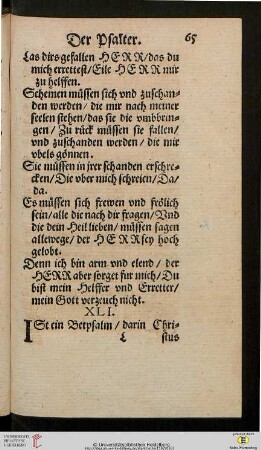 Der Psalter. 65
Las dirs gefallen HERR/das du
mich errettest/Eile HERR mir
zu helffen.
Schemen müssen sich vnd zuschan-
den werden/ die mir nach meiner
seelen stehen/das sie die vmbbrin-
gen/ Zu rück müssen sie fallen/
vnd zuschanden werden/ die mir
vbels gönnen.
Sie müssen in jrer schanden erschre-
cken/Die vber mich schreien/Da/
da.
Es müssen sich frewen vnd frölich
sein/alle die nach dir fragen/Vnd
die dein Heil lieben/ müssen sagen
allewege/ der HERR sey hoch
gelobt.
Denn ich bin arm vnd elend/ der
HERR aber sorget für mich/Du
bist mein Helffer vnd Erretter/
mein Gott verzeuch nicht.
XLI.
ISt ein Betpsalm/ darin Chri-
L stus
UNIVERSITÄTS-
BIBLIOTHEK
HEIDELBERG
Universitätsbibliothek Heidelberg